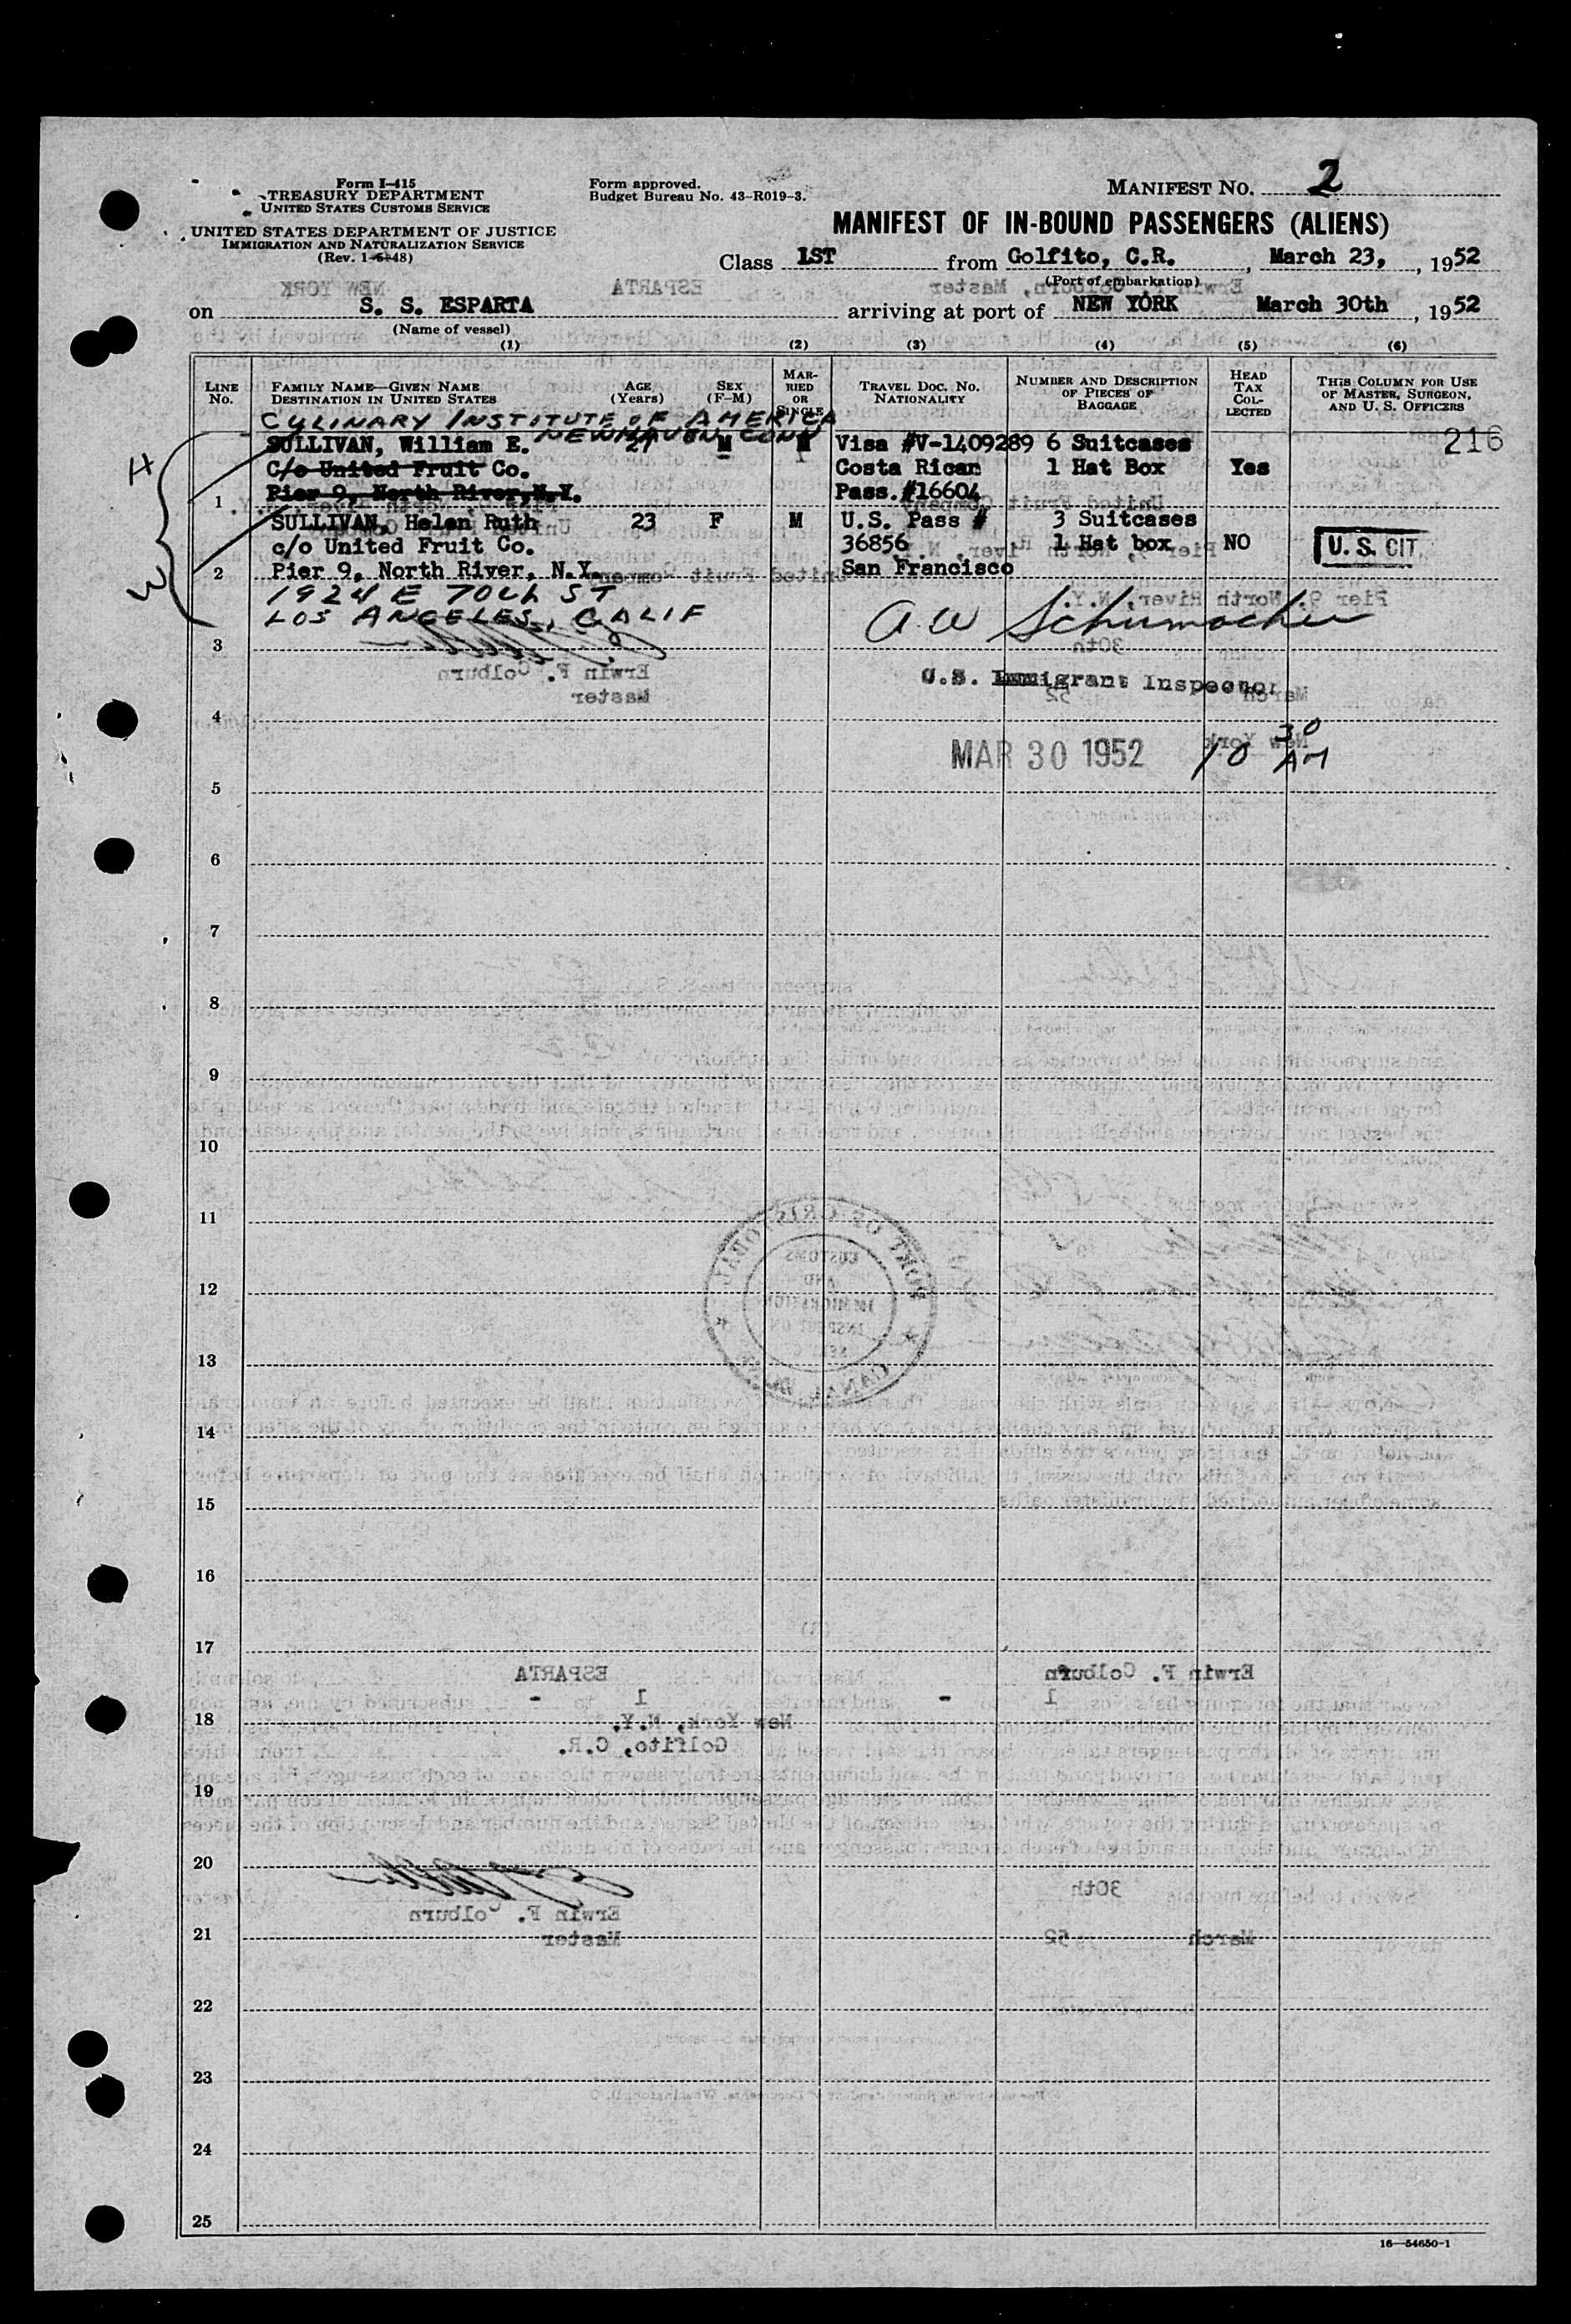 Form I-415
TREASURY DEPARTMENT
UNITED STATES CUSTOMS SERVICE
UNITED STATES DEPARTMENT OF JUSTICE
IMMIGRATION AND NATURALIZATION SERVICE
(Rev. 1-6-48)
Form approved.
Budget Bureau No. 43-R019-3.
MANIFEST NO. 2
MANIFEST OF IN-BOUND PASSENGERS (ALIENS)
Class 1ST from Golfito, C.R., March 23, 1952
(Port of embarkation)
on S. S. ESPARTA arriving at port of NEW YORK March 30th, 1952
(Name of vessel)
(1) (2) (3) (4) (5) (6)
LINE NO.
FAMILY NAME—GIVEN NAME
DESTINATION IN UNITED STATES
AGE (Years)
SEX (F-M)
MARRIED OR SINGLE
TRAVEL DOC. NO.
NATIONALITY
NUMBER AND DESCRIPTION OF PIECES OF BAGGAGE
HEAD TAX COLLECTED
THIS COLUMN FOR USE OF MASTER, SURGEON, AND U. S. OFFICERS
CULINARY INSTITUTE OF AMERICA
NEWHAVEN CONN
216
SULLIVAN, William E. M Visa #V-1409289 6 Suitcases
C/o United Fruit Co. Costa Rican 1 Hat Box Yes
1 Pier 9, North River, N.Y. Pass.#16604
SULLIVAN, Helen Ruth 23 F M U.S. Pass # 3 Suitcases
c/o United Fruit Co. 36856 1 Hat box NO U.S. CIT.
2 Pier 9, North River, N.Y. San Francisco
H
W
1924 E 70th ST
LOS ANGELES, CALIF
A W Schumacher
3
U.S. Immigrant Inspector
4
MAR 30 1952 10 30 AM
5
6
7
8
9
10
11
12
13
14
15
16
17
18
19
20
21
22
23
24
25
16—54650-1